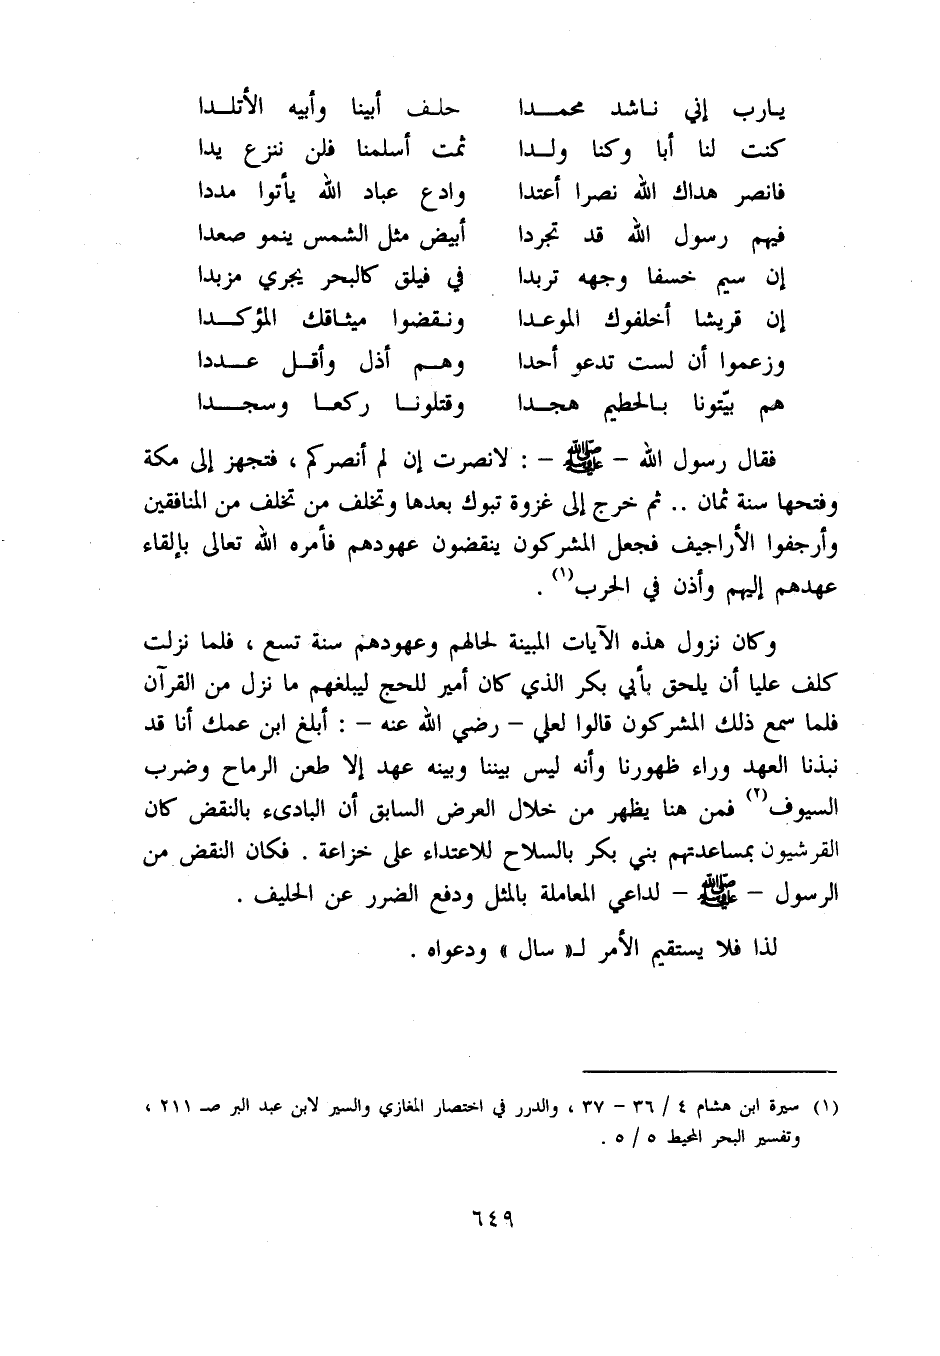 يارب إني ناشد محمـــدا حلـف أبينا وأبيه الأتلـدا
كنت لنا أبا وكنا ولـدا ثمت أسلمنا فلن ننزع يدا
فانصر هداك الله نصرا أعتدا وادع عباد الله يأتوا مددا
فيهم رسول الله قد تجردا أبيض مثل الشمس ينمو صعدا
إن سيم خسفا وجهه تربدا في فيلق كالبحر يجري مزبدا
إن قريشا أخلفوك الموعـدا ونـقضوا ميثـاقك المؤكـــدا
وزعموا أن لست تدعو أحدا وهـــم أذل وأقــل عـــددا
هم بيّتونا بـالحطيم هجـدا وقتلونـــا ركعــا وسجــدا
فقال رسول الله – ﷺ – : لانصرت إن لم أنصركم ، فتجهز إلى مكة
وفتحها سنة ثمان .. ثم خرج إلى غزوة تبوك بعدها وتخلف من تخلف من المنافقين
وأرجفوا الأراجيف فجعل المشركون ينقضون عهودهم فأمره الله تعالى بإلقاء
عهدهم إليهم وأذن في الحرب(١) .
وكان نزول هذه الآيات المبينة لحالهم وعهودهم سنة تسع ، فلما نزلت
كلف عليا أن يلحق بأبي بكر الذي كان أمير للحج ليبلغهم ما نزل من القرآن
فلما سمع ذلك المشركون قالوا لعلي – رضي الله عنه – : أبلغ ابن عمك أنا قد
نبذنا العهد وراء ظهورنا وأنه ليس بيننا وبينه عهد إلا طعن الرماح وضرب
السيوف(٢) فمن هنا يظهر من خلال العرض السابق أن البادىء بالنقض كان
القرشيون بمساعدتهم بني بكر بالسلاح للاعتداء على خزاعة . فكان النقض من
الرسول – ﷺ – لداعي المعاملة بالمثل ودفع الضرر عن الحليف .
لذا فلا يستقيم الأمر لـ« سال » ودعواه .
(١) سيرة ابن هشام ٤ / ٣٦ – ٣٧ ، والدرر في اختصار المغازي والسير لابن عبد البر صـ ٢١١ ،
وتفسير البحر المحيط ٥ / ٥ .
٦٤٩